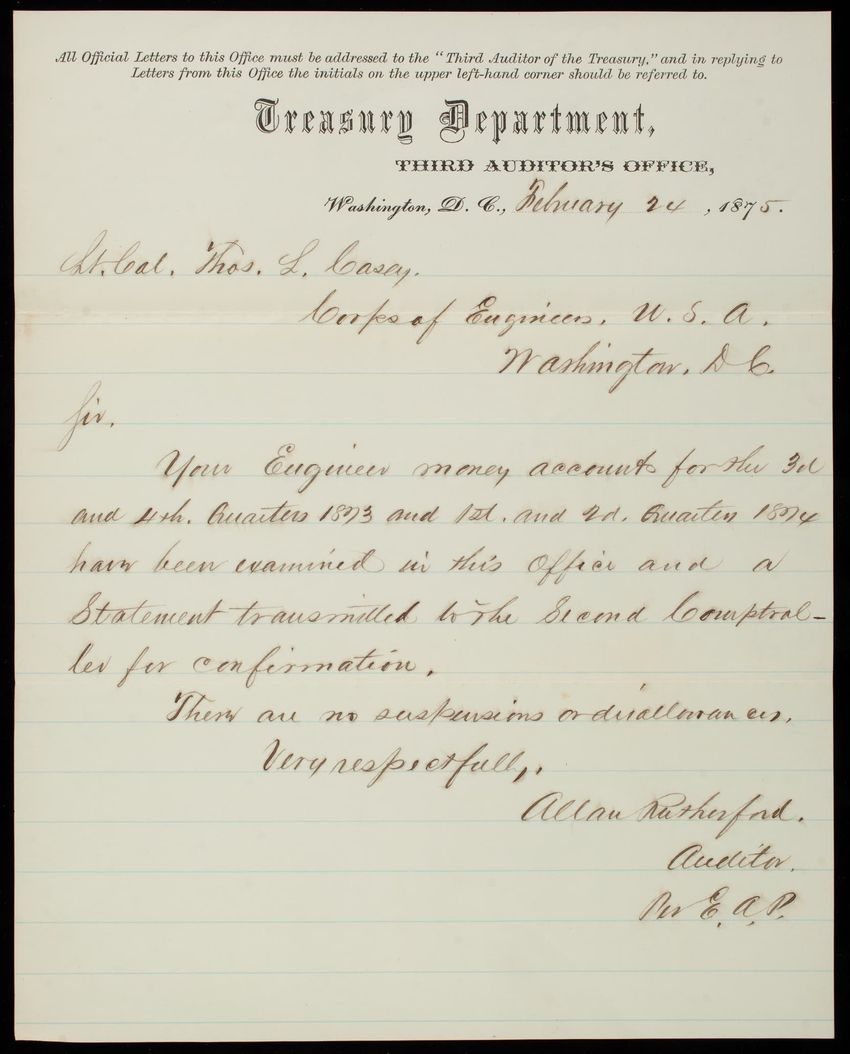 All Official Letters to this Office must be addressed to the "Third Auditor of the Treasury," and in replying to
Letters from this Office the initials on the upper left-hand corner should be referred to.
Treasury Department,
THIRD AUDITOR'S OFFICE,
Washington, D. C., February 24, 1875.
Lt. Col. Thos. L. Casey.
Corps of Engineers. U. S. A.
Washington. D C.
Sir.
Your Engineer money accounts for the 3d
and 4th. Quarters 1873 and 1st. and 2d. Quarters 1874
have been examined in this Office and a
Statement transmitted to the Second Comptrol-
ler for confirmation.
There are no suspensions or disallowances.
Very respectfully,.
Allan Rutherford.
Auditor.
Per E. A. P.